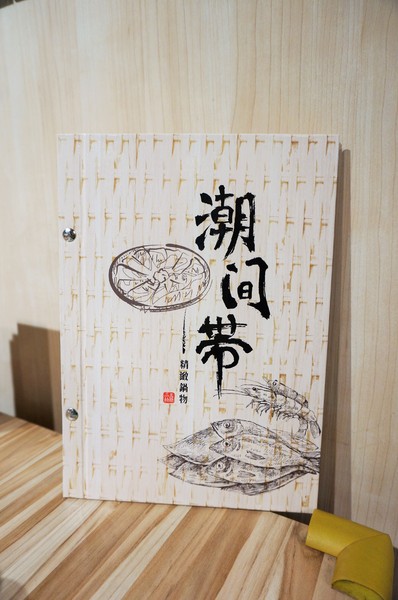 潮间带
精緻鍋物